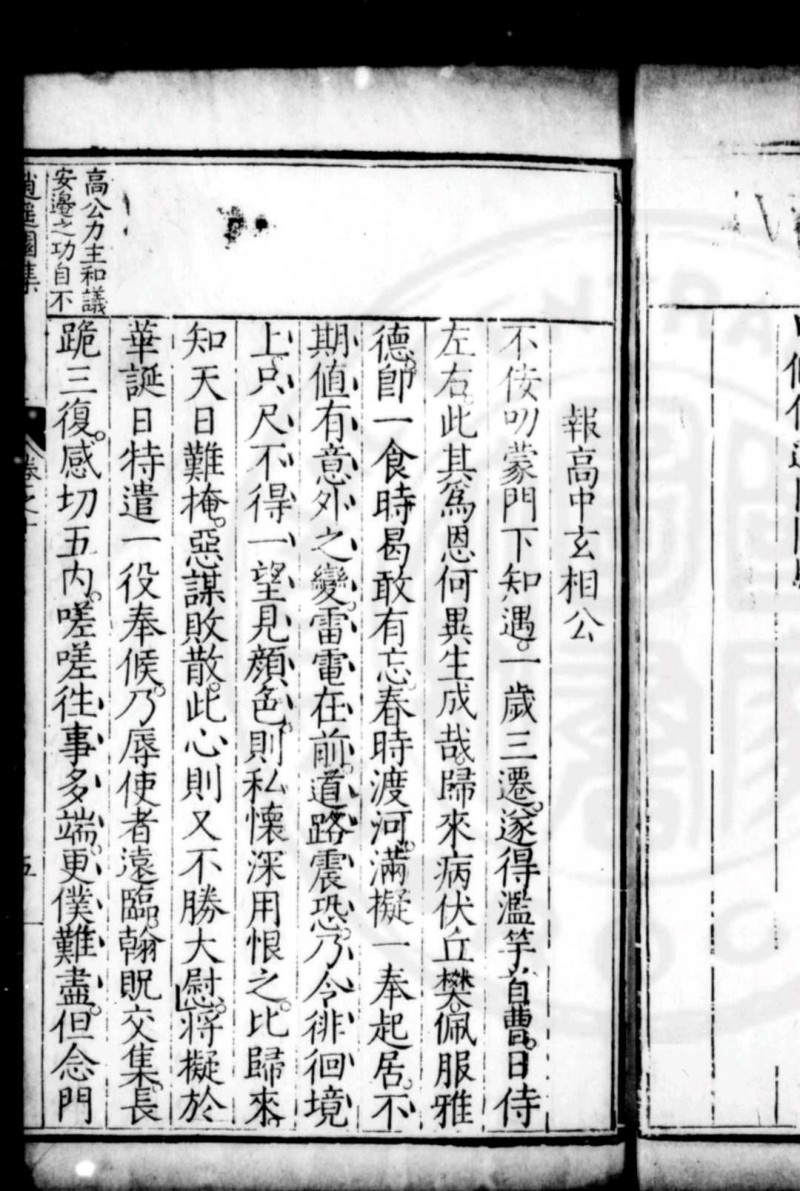 報高中玄相公
不佞叨蒙門下知遇。一歲三遷。遂得濫竽首曹。日侍
左右。此其爲恩何異生成哉。歸來病伏丘樊。佩服雅
德。卽一食時曷敢有忘。春時渡河。滿擬一奉起居。不
期值有意外之變。雷電在前。道路震恐。乃令徘徊境
上。只尺不得一望見顏色。則私懷深用恨之。比歸來。
知天日難掩。惡謀敗散。此心則又不勝大慰。將擬於
華誕日特遣一役奉候。乃辱使者遠臨。翰貺交集。長
跪三復。感切五內。嗟嗟往事多端。更僕難盡。但念門
高公力主和議
安邊之功自不
逍遙園集
卷之十
五